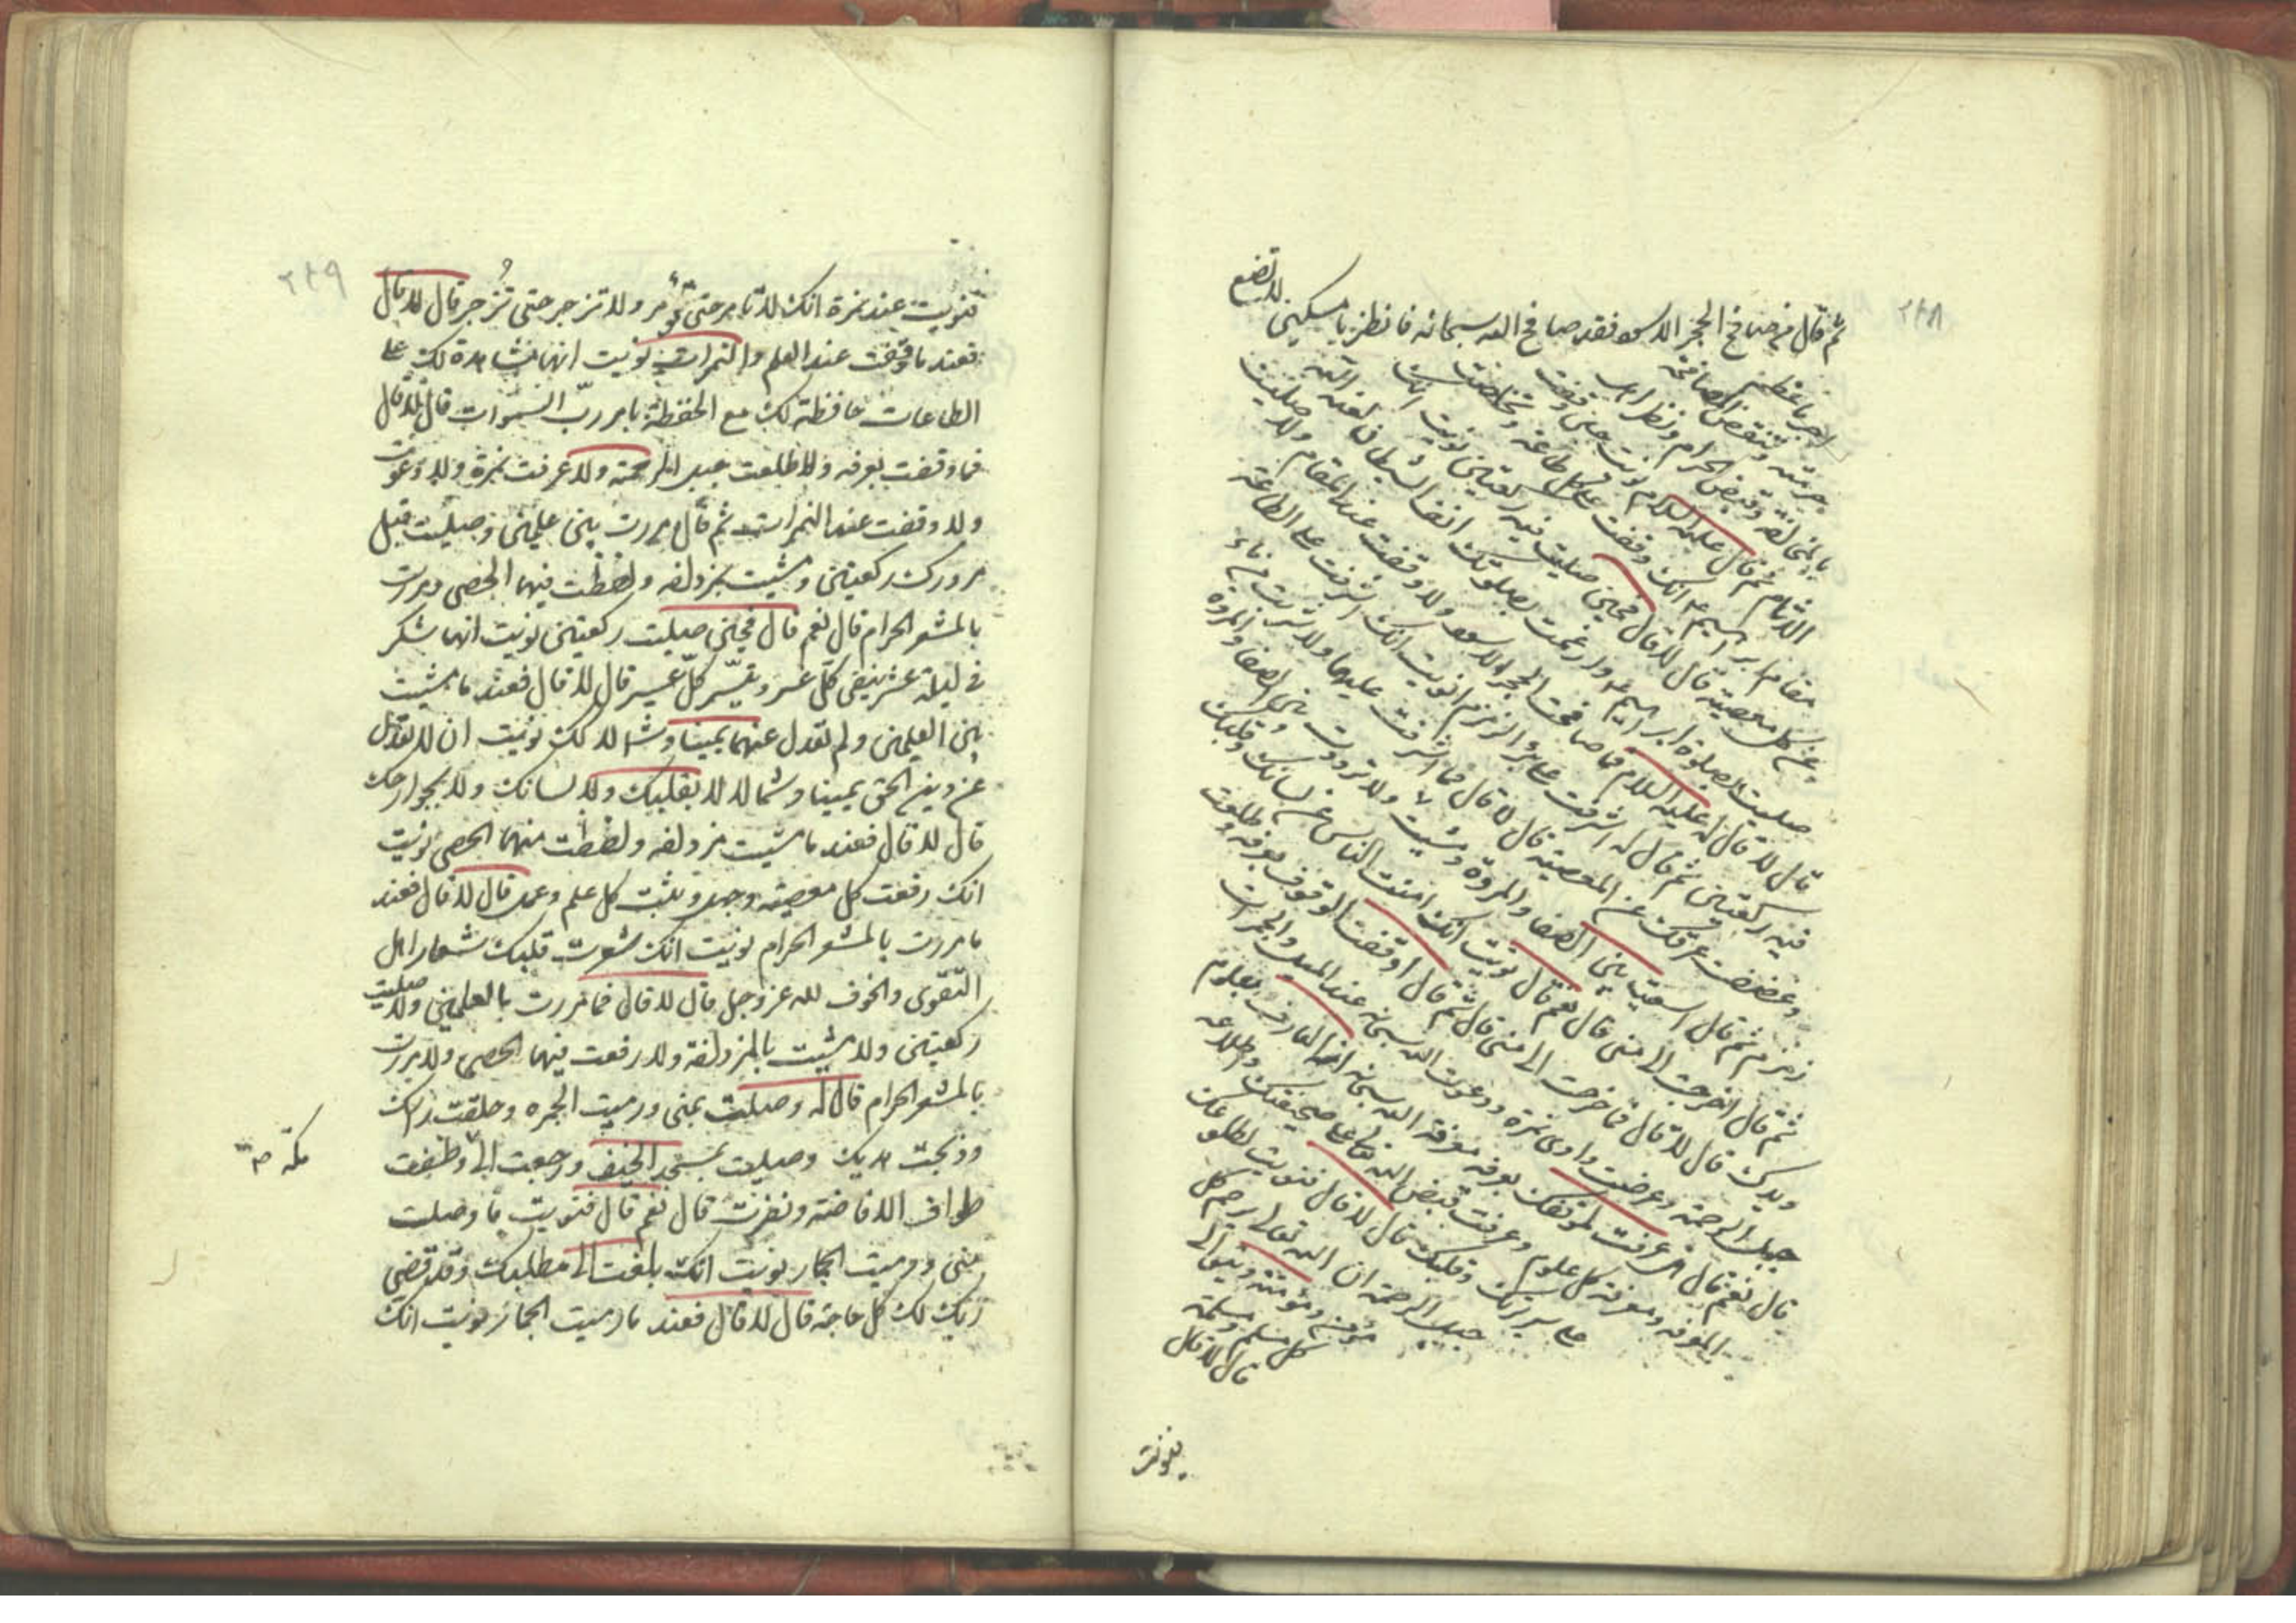 ٢٢٨
ثم قال من صافح الحجر الاسود فقد صافح الله سبحانه فانظر يا مسكين لا تضيع
اجر ما عظم
حرمته وتنقض المصافحة
بالمخالفة وقبض الحرام ونظر اهل
الاثام ثم قال عليه السلام نويت حين وقفت
مقام ابراهيم ع انك وقفت على كل طاعة وتخلفت
عن كل معصية قال لا قال فحين صليت فيه ركعتين نويت انك
صليت بصلوة ابراهيم ع وارغمت بصلوتك انف الشيطان لعنه الله
قال لا قال له عليه السلام فما صافحت الحجر الاسود ولا وقفت عند المقام ولا صليت
فيه ركعتين ثم قال له اشرفت على بئر الزمزم نويت انك اشرفت على الطاعة
وغضضت طرفك عن المعصية قال لا قال فما اشرفت عليها ولا شربت من ماء
زمزم ثم قال اسعيت بين الصفا والمروة ومشيت ولا ترددت بين الصفا والمروة
ثم قال اخرجت الى منى قال نعم قال نويت انك امنت الناس من لسانك وقلبك
ويدك قال لا قال فما خرجت الى منى قال ثم قال اوقفت الوقوف بعرفه وطلعت
جبل الرحمة وعرفت وادى نمرة ودعوت الله سبحانه عند الميل والجمرات
قال نعم قال هل عرفت بموقفك بعرفه معرفة الله سبحانه امر المعارف والعلوم
المعرفه ومعرفة كل علوم وعرفت قبض الله على صحيفتك واطلاعه
على سريرتك وقلبك قال لا قال فنويت بطلوعك
جبل الرحمة ان الله تعالى يرحم كل
مؤمن ومؤمنة ويتولى
كل مسلم ومسلمة
قال لا قال
فنويت
٢٢٩
فنويت عند نمرة انك لا تامر حتى تؤمر ولا تزجر حتى تزجر قال لا قال
فعند ما وقفت عند العلم والنمرات نويت انها شاهدة لك على
الطاعات حافظة لك مع الحفظة بامر رب السموات قال لا قال
فما وقفت بعرفه ولا طلعت جبل الرحمة ولا عرفت نمرة ولا دعوت
ولا وقفت عند النمرات ثم قال مررت بين علمين وصليت قبل
مرورك ركعتين ومشيت بمزدلفه ولقطت فيها الحصى ومررت
بالمشعر الحرام قال نعم قال فحين صليت ركعتين نويت انها شكر
في ليلة عشر ينفي كل عسر وييسر كل عسير قال لا قال فعند ما مشيت
بين العلمين ولم تعدل عنهما يمينا وشمالا لك نويت ان لا تعدل
عن دين الحق يمينا وشمالا لا بقلبك ولا بلسانك ولا بجوارحك
قال لا قال فعند ما مشيت بمزدلفه ولقطت منهما الحصى نويت
انك رفعت كل معصيه وجهل وتثبت كل علم وعمل قال لا قال فعند
ما مررت بالمشعر الحرام نويت انك شعرت قلبك شعار اهل
التقوى والخوف لله عز وجل قال لا قال فما مررت بالعلمين ولا صليت
ركعتين ولا مشيت بالمزدلفة ولا رفعت فيها الحصى ولا مررت
بالمشعر الحرام قال له وصليت بمنى ورميت الجمره وحلقت راسك
وذبحت هديك وصليت بمسجد الخيف ورجعت الى وطفت
مكة
طواف الافاضة ونفرت قال نعم قال فنويت ما وصلت
منى ورميت الجمار نويت انك بلغت الى مطلبك وقد قضى
ربك لك كل حاجة قال لا قال فعند ما رميت الجمار نويت انك